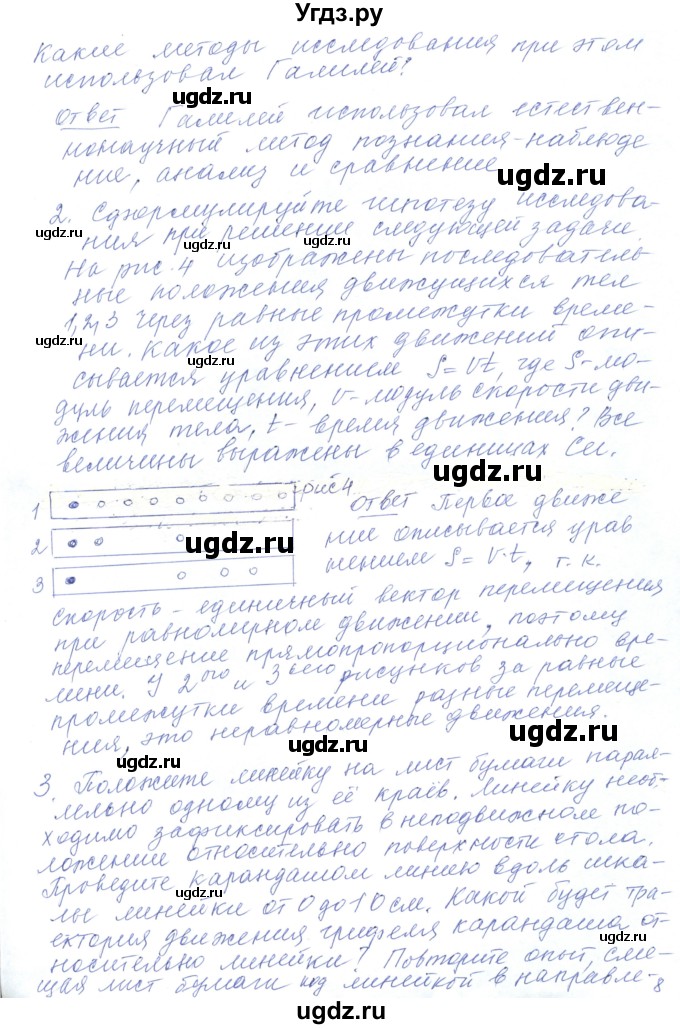 Угдз.ру
Какие методы исследования при этом
использовал Галилей?
ugdz.ru
Ответ Галилей использовал естествен-
ugdz.ru
нонаучный метод познания-наблюде
ние, анализ и сравнение
ugdz.ru
2. Сформулируйте гипотезу исследова-
ugdz.ru
ния при решение следующей задачи.
На рис. 4 изображены последователь
ные положения движущихся тел
1,2,3 через равные промежутки време-
ugdz.ru
ни. Какое из этих движений опи-
сывается уравнением S=Vt, где S-мо-
дуль перемещения, v-модуль скорости дви-
жения тела, t-время движения? Все
величины выражены в единицах Си.
ugdz.ru
рис4
1
Ответ Первое движе
2
ние описывается урав
ugdz.ru
3
нением S=V·t, т.к.
скорость-единичный вектор перемещения
при равномерном движении, поэтому
перемещение прямопропорционально вре-
мени. У 2ого и 3ьего рисунков за равные
промежутки времени разные перемеще-
ния, это неравномерные движения.
ugdz.ru
3. Положите линейку на лист бумаги парал-
лельно одному из её краёв. Линейку необ-
ходимо зафиксировать в неподвижном по-
ложении относительно поверхности стола.
Проведите карандашом линию вдоль шка-
ugdz.ru
лы линейки от 0 до 10 см. Какой будет тра-
ектория движения грифеля карандаша от-
носительно линейки? Повторите опыт, сме-
щая лист бумаги под линейкой в направле-
ugdz.ru
8